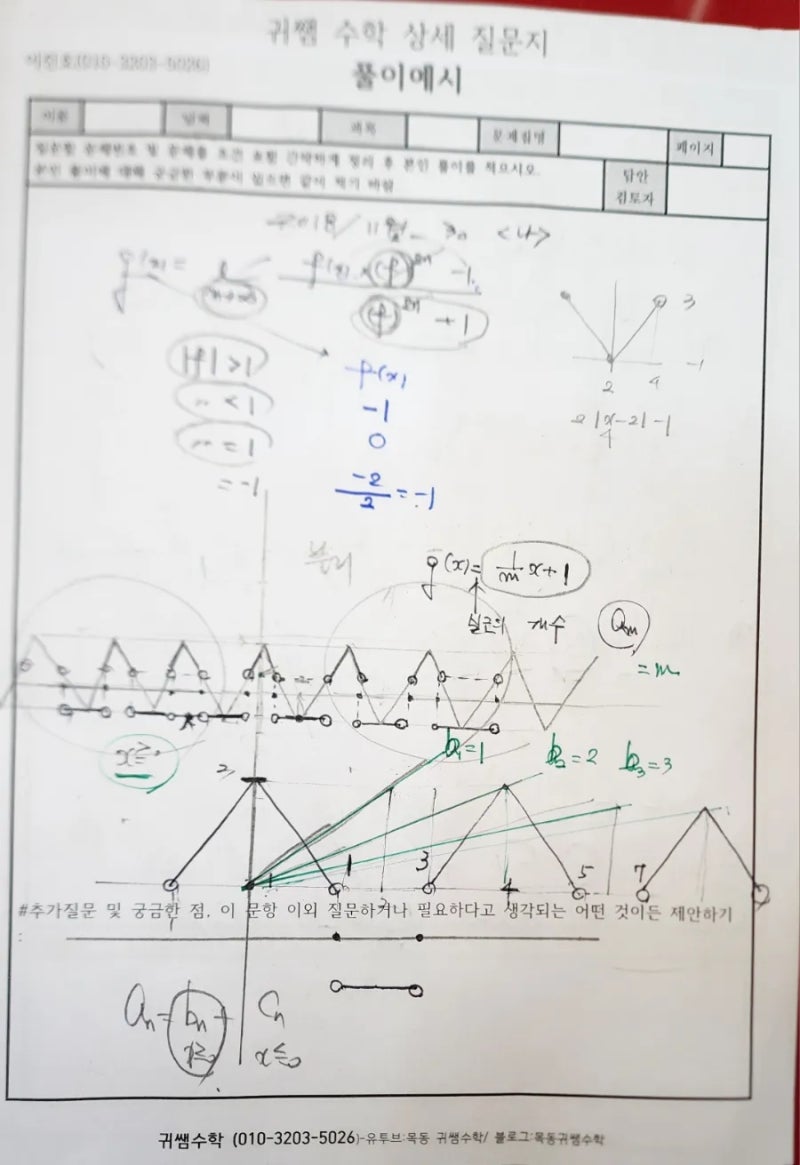 귀쌤 수학 상세 질문지
풀이예시
이름 날짜 과목 문제집명 페이지
및 문제를 조건 포함 간략하게 정리 후 본인 풀이를 적으시오.
본인 풀이에 대해 궁금한 부분이 있으면 같이 적기 바람
답안
검토자
2018/11월 30 <나>
f(x) × (f)^2n - 1
(f)^2n + 1
|f| > 1 f(x)
" < 1 -1
" = 1 0
= -1 -2/2 = -1
3
-1
2 4
2|x-2|-1
4
분리
g(x) = 1/m x + 1
실근의 개수 am
= m
x≥0
b1=1 b2=2 b3=3
2
1 3 4 5 7
#추가질문 및 궁금한 점, 이 문항 이외 질문하거나 필요하다고 생각되는 어떤 것이든 제안하기
an = bn + Cn
x≥0 x≤0
귀쌤수학 (010-3203-5026)-유투브:목동 귀쌤수학/ 블로그:목동귀쌤수학